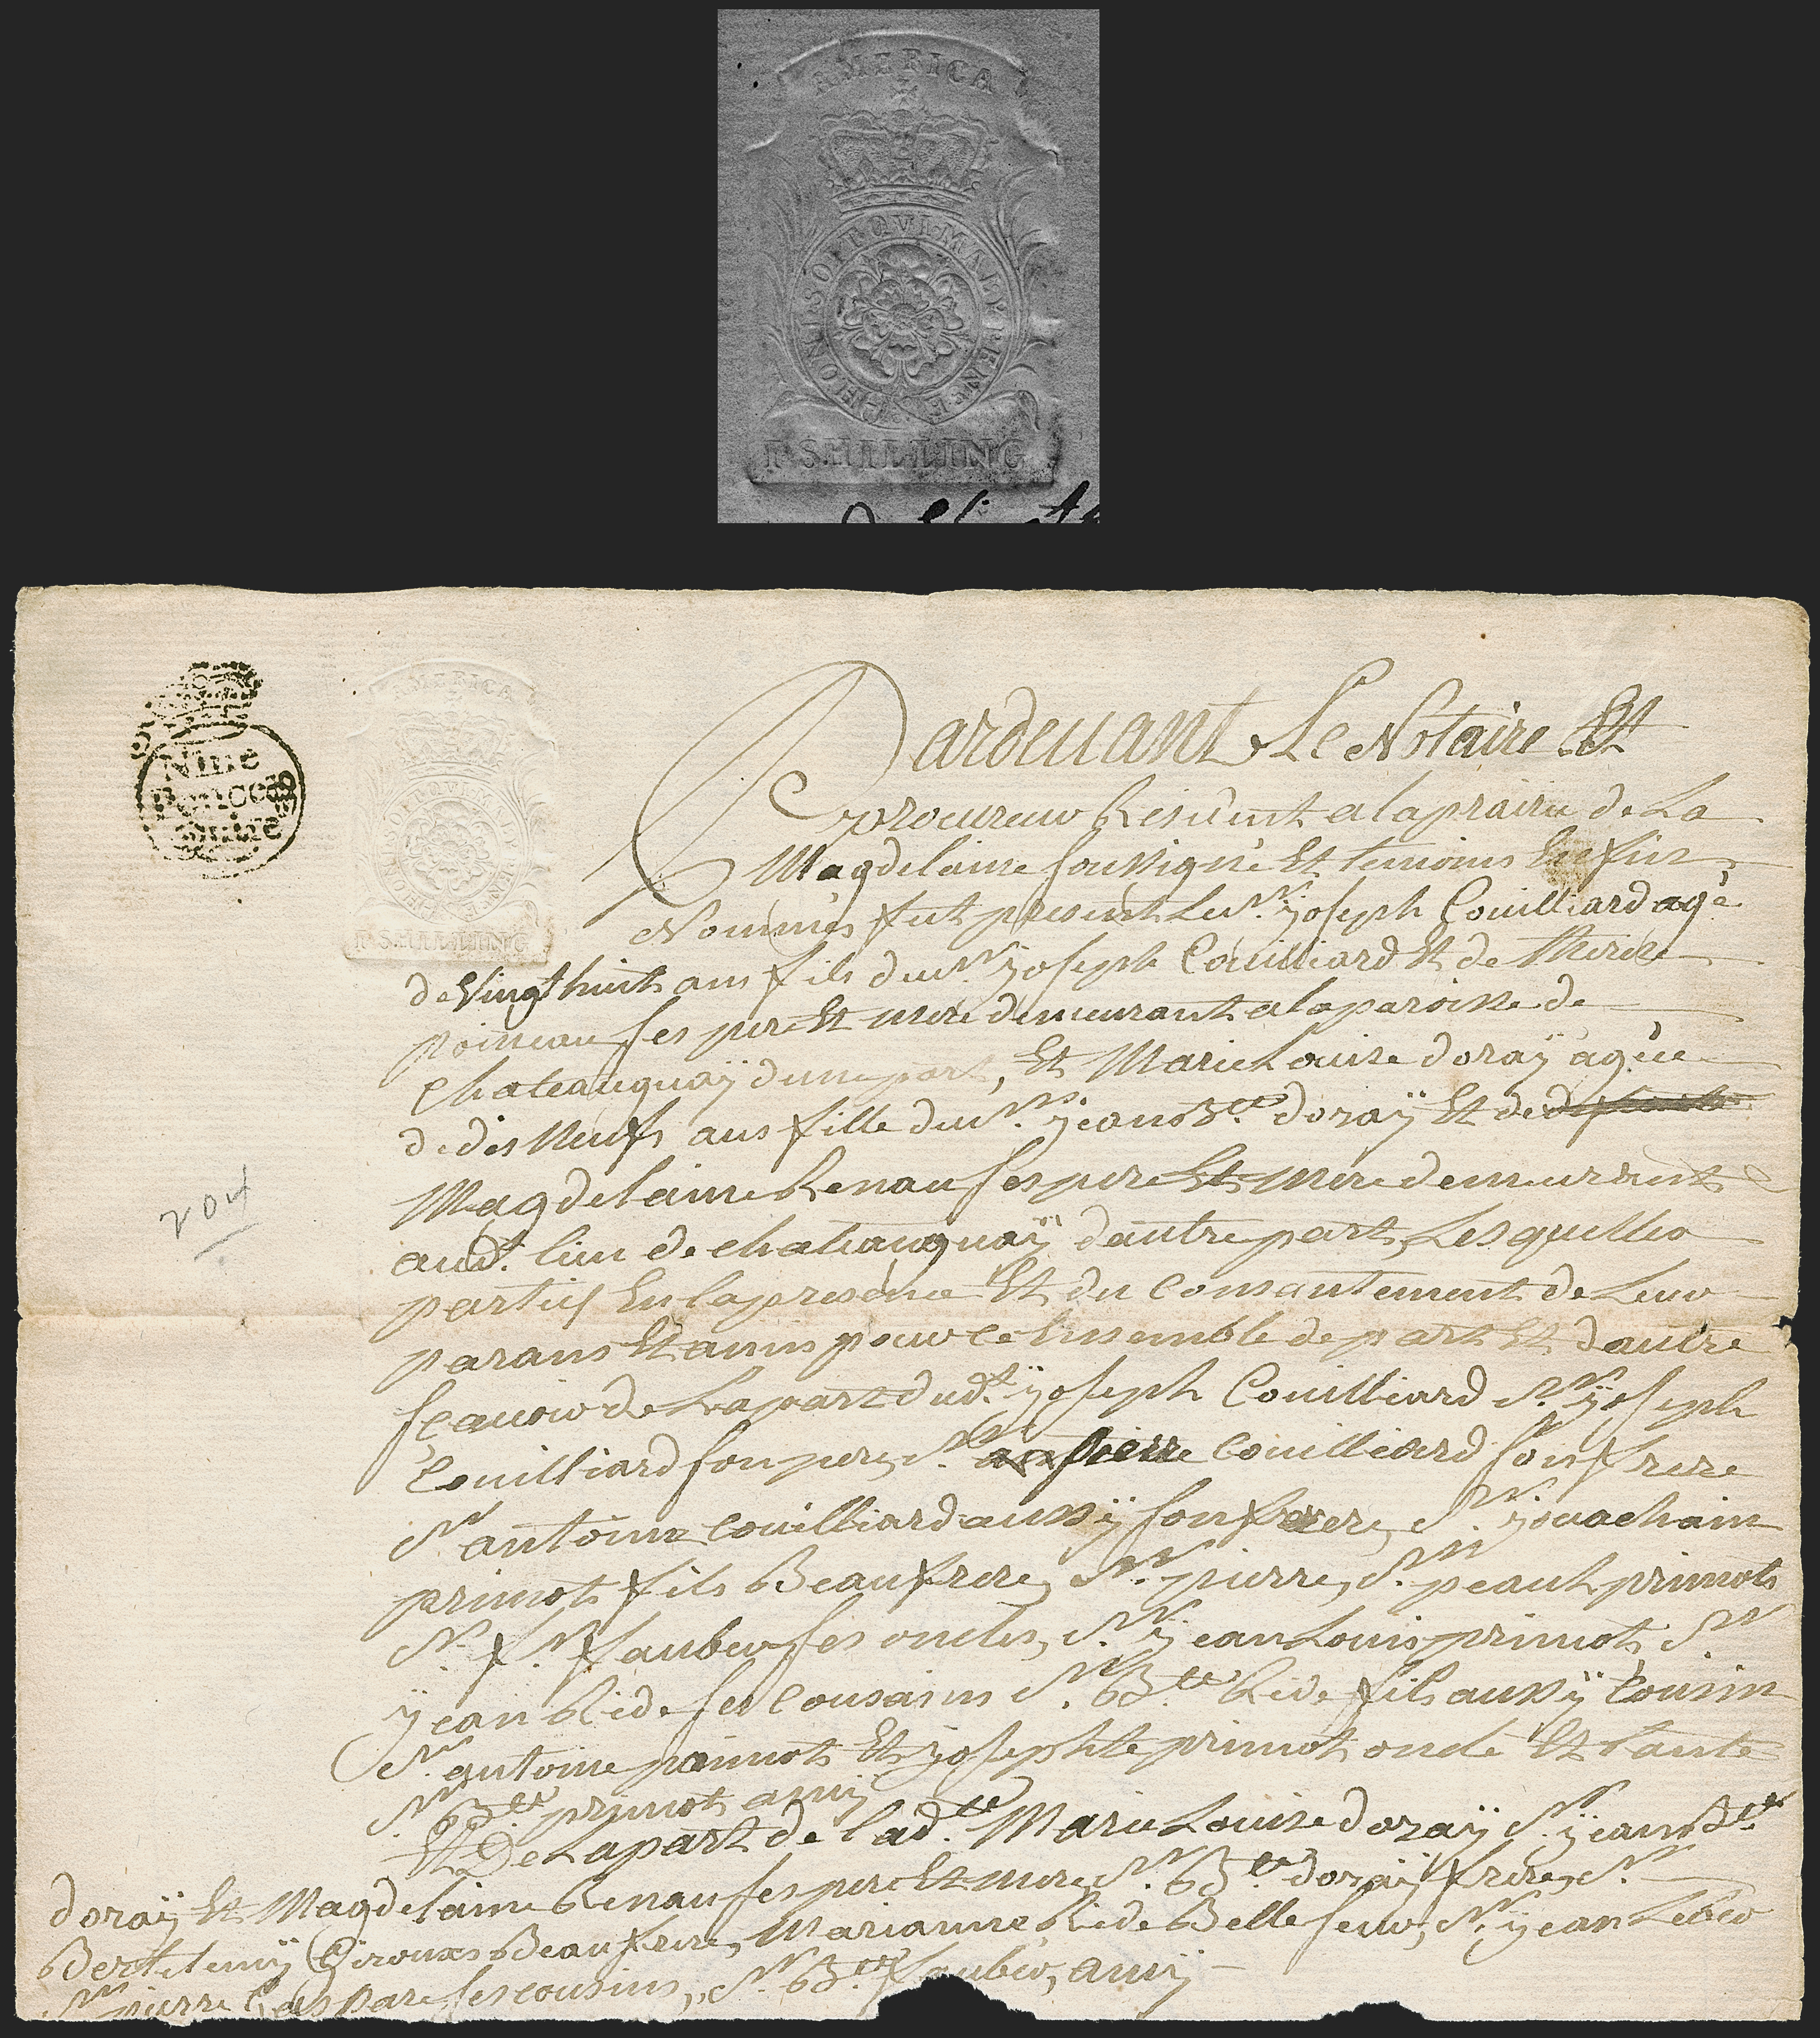 AMERICA
HONI·SOIT·QVI·MAL·Y·PENSE
I·SHILLING
AMERICA
HONI·SOIT·QVI·MAL·Y·PENSE
I·SHILLING
Nine
Pence
Quire
Pardeuant Le Notaire Et
procureur Resident a laprairie de La
Magdelaine soussigné Et temoins Enfin
Nommés fut present Le Sr. yoseph Couilliard agé
de Vingt huit ans fils du Sr. yoseph Couilliard Et de therese
poineau ses pere Et mere demeurant alaparoisse de
Chateauguaÿ dune part, Et Marie Louise doraÿ agée
de dis Neuf ans fille du Sr. yean Bte doraÿ Et de
Magdelaine Renau ses pere Et mere demeurant
aud. lieu de chateauguaÿ dautre part, Lesquelles
parties En lapresence Et du Consantement de Leur
parans Et amis pour ce Enssemble de part Et dautre
scauoir de Lapart dud. yoseph Couilliard Sr. yoseph
Couilliard son pere, Sr. pierre Couilliard son frere
Sr antoine Couilliard aussÿ son frere, Sr. yovachain
primot fils Beaufrere, Sr. pierre, Sr. peaul primot
Sr. fr. fauber ses oncles, Sr. yean Louis primot, Sr
yean Ride ses Cousains Sr. Bte Ride fils aussÿ Cousin
Sr. antoine primot Et yosephte primot, oncle Et tante
Sr. Bte primot amÿ
Et De Lapart de Ladte. Marie Louise doraÿ Sr. yean Bte
doraÿ Et Magdelaine Renau ses pere Et mere, Sr. Bte doraÿ frere, Sr.
Berthelemÿ Giroux Beaufrere, Marianne Ride Belle seur, Sr. yean Leber
Sr pierre Gaspare ses cousins, Sr. Bte faubér, amÿ
204